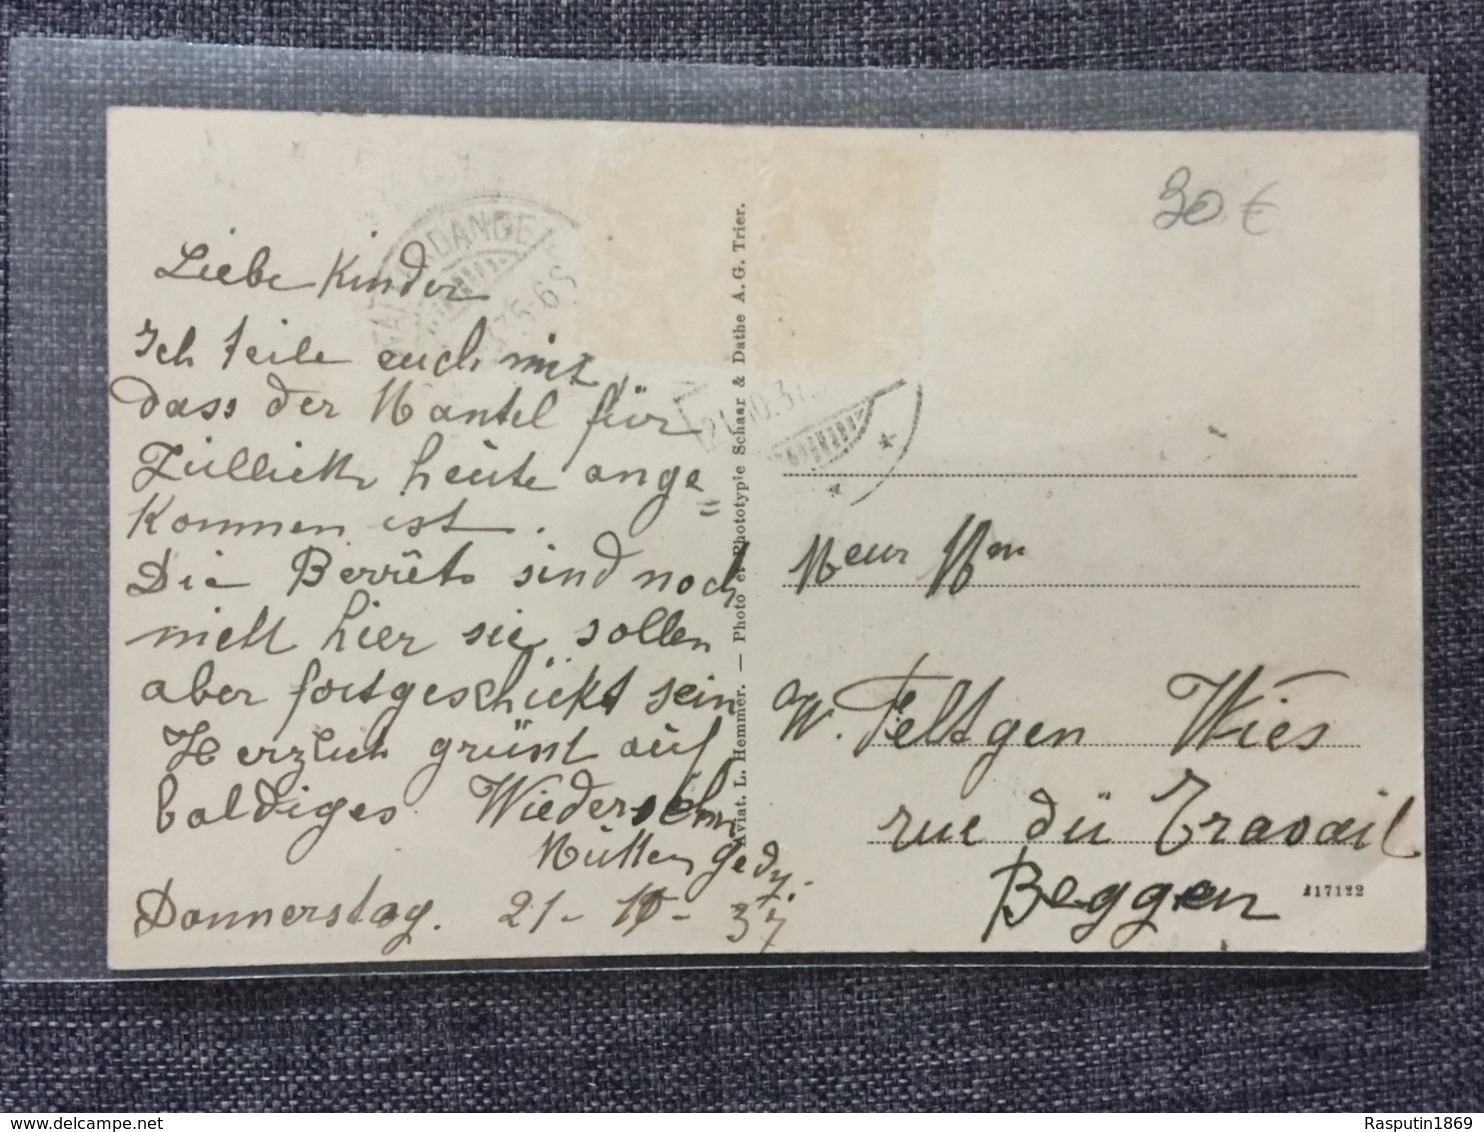 Liebe Kinder
Ich teile euch mit
dass der Mantel für
heute ange=
kommen ist.
Die Berrêts sind noch
nicht hier sie sollen
aber fortgeschickt sein
Herzlich grünt auf
baldiges Wiedersehn
Donnerstag. 21-10-37
DANGE
5-6S
21.10.37
Aviat. L. Hemmer. — Photo et Phototypie Schaar & Dathe A. G. Trier.
30 €
Meur Mm
W. Feltgen Wies
rue dü Travail
Beggen
217122
Rasputin1869
delcampe.net